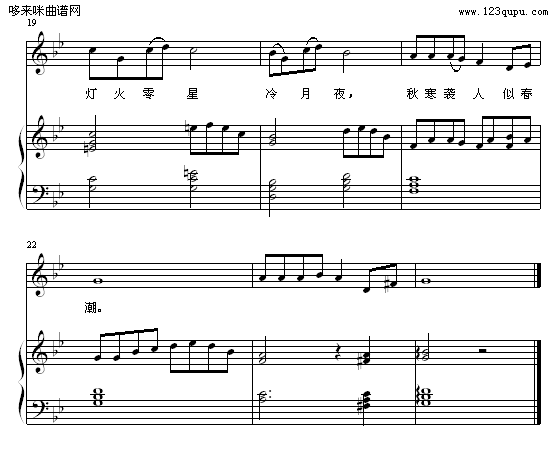 哆来咪曲谱网 www.123qupu.com
19
灯 火 零 星 冷 月 夜， 秋 寒 袭 人 似 春
22
潮。